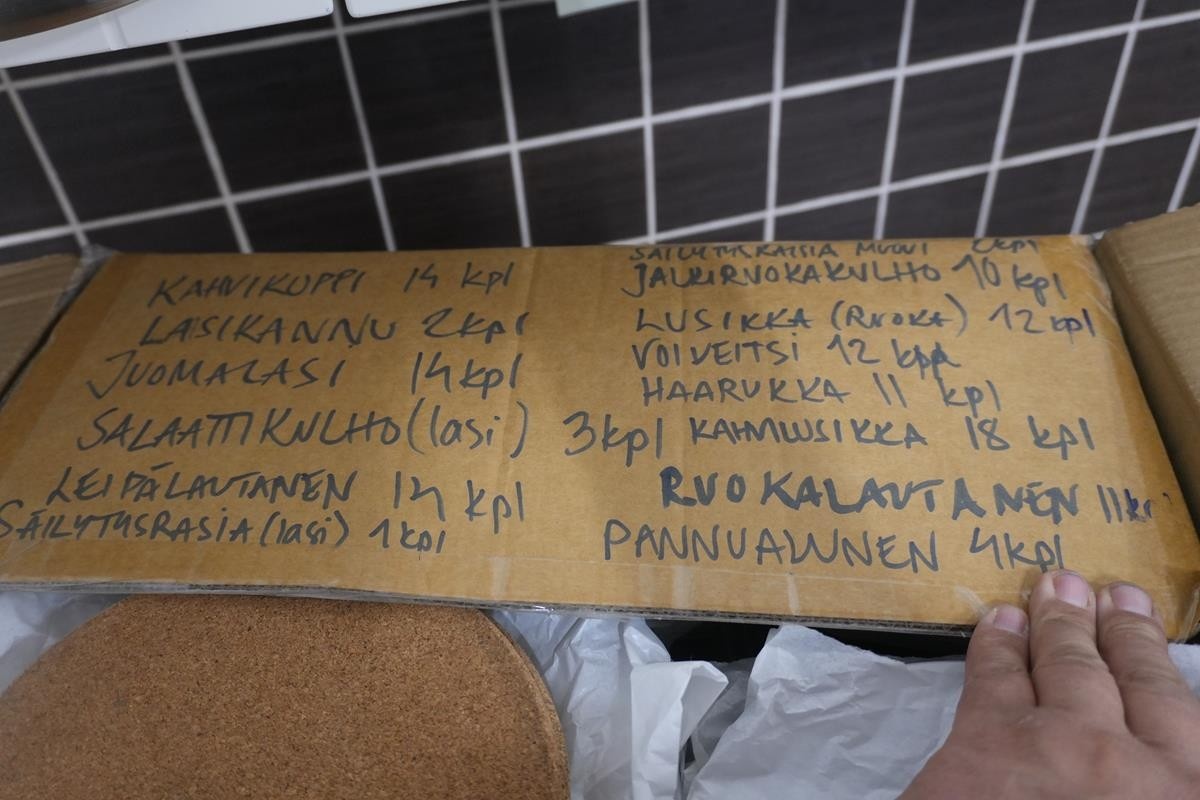 KAHVIKUPPI 14 kpl
LASIKANNU 2kpl
JUOMALASI 14kpl
SALAATTIKULHO (lasi) 3kpl
LEIPÄLAUTANEN 14 kpl
SÄILYTYSRASIA (lasi) 1kpl
SÄILYTYSRASIA MUOVI 2kpl
JÄLKIRUOKAKULHO 10 kpl
LUSIKKA (RUOKA) 12 kpl
VOIVEITSI 12 kpl
HAARUKKA 11 kpl
KAHVILUSIKKA 18 kpl
RUOKALAUTANEN 11 kpl
PANNUALUNEN 4kpl